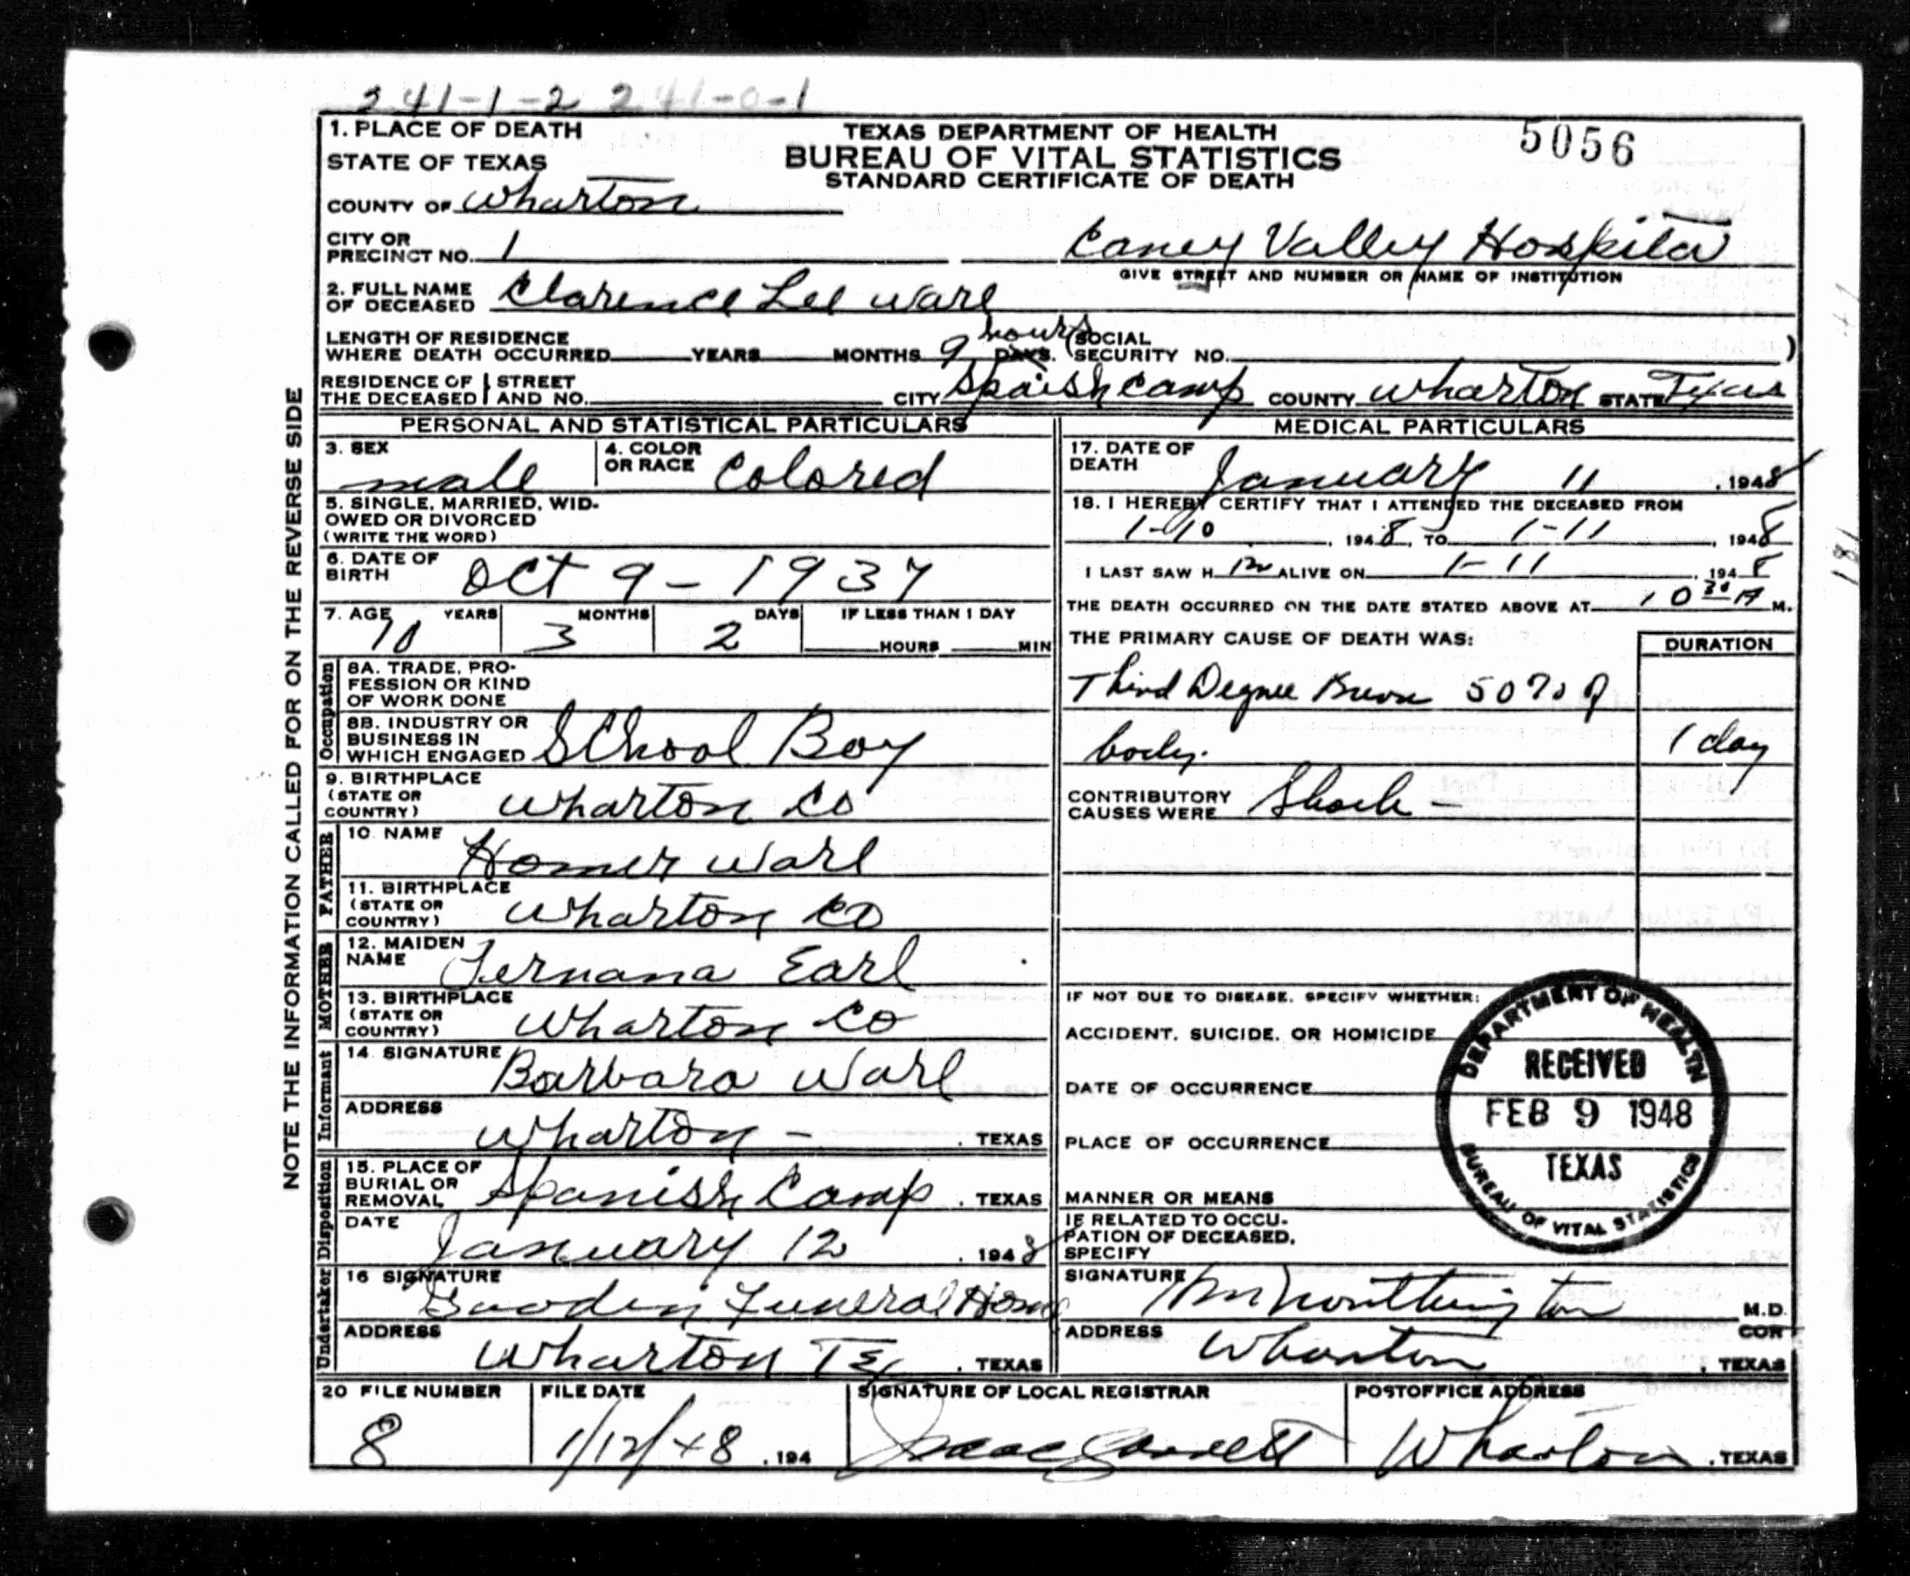 241-1-2 241-0-1
1. PLACE OF DEATH
STATE OF TEXAS
COUNTY OF Wharton
CITY OR PRECINCT NO. 1
TEXAS DEPARTMENT OF HEALTH
BUREAU OF VITAL STATISTICS
STANDARD CERTIFICATE OF DEATH
5056
Caney Valley Hospital
GIVE STREET AND NUMBER OR NAME OF INSTITUTION
2. FULL NAME OF DECEASED Clarence Lee Warl
LENGTH OF RESIDENCE
WHERE DEATH OCCURRED YEARS MONTHS 9 hours DAYS. (SOCIAL SECURITY NO. )
RESIDENCE OF THE DECEASED STREET AND NO. CITY Spaish Camp COUNTY Wharton STATE Texas
PERSONAL AND STATISTICAL PARTICULARS
3. SEX male
4. COLOR OR RACE Colored
5. SINGLE, MARRIED, WIDOWED OR DIVORCED
(WRITE THE WORD)
6. DATE OF BIRTH Oct 9 - 1937
7. AGE 10 YEARS 3 MONTHS 2 DAYS IF LESS THAN 1 DAY
HOURS MIN
Occupation
8A. TRADE, PROFESSION OR KIND OF WORK DONE
8B. INDUSTRY OR BUSINESS IN WHICH ENGAGED School Boy
9. BIRTHPLACE (STATE OR COUNTRY) Wharton Co
FATHER
10. NAME Homer Warl
11. BIRTHPLACE (STATE OR COUNTRY) Wharton Co
MOTHER
12. MAIDEN NAME Fernana Earl
13. BIRTHPLACE (STATE OR COUNTRY) Wharton Co
Informant
14. SIGNATURE Barbara Warl
ADDRESS Wharton - , TEXAS
Disposition
15. PLACE OF BURIAL OR REMOVAL Spanish Camp , TEXAS
DATE January 12 , 1948
Undertaker
16 SIGNATURE Gooden Funeral Home
ADDRESS Wharton Tex , TEXAS
MEDICAL PARTICULARS
17. DATE OF DEATH January 11 , 1948
18. I HEREBY CERTIFY THAT I ATTENDED THE DECEASED FROM
1-10 , 1948, TO 1-11 , 1948
I LAST SAW H im ALIVE ON 1-11 , 1948
THE DEATH OCCURRED ON THE DATE STATED ABOVE AT 10 30 A M.
THE PRIMARY CAUSE OF DEATH WAS:
DURATION
Third Degree Burn 50% of
body. 1 day
CONTRIBUTORY CAUSES WERE Shock -
IF NOT DUE TO DISEASE, SPECIFY WHETHER:
ACCIDENT, SUICIDE, OR HOMICIDE
DATE OF OCCURRENCE
PLACE OF OCCURRENCE
MANNER OR MEANS
IF RELATED TO OCCUPATION OF DECEASED, SPECIFY
DEPARTMENT OF HEALTH
RECEIVED
FEB 9 1948
TEXAS
BUREAU OF VITAL STATISTICS
SIGNATURE Worthington M.D.
COR
ADDRESS Wharton , TEXAS
20 FILE NUMBER 8
FILE DATE 1/12/48 , 194
SIGNATURE OF LOCAL REGISTRAR Isaac
POSTOFFICE ADDRESS Wharton , TEXAS
NOTE THE INFORMATION CALLED FOR ON THE REVERSE SIDE